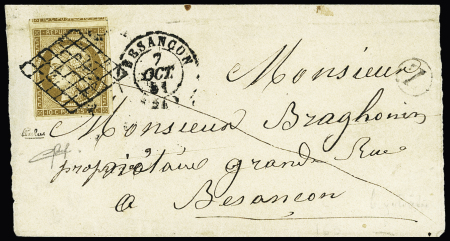 BESANÇON
7
OCT.
51
Monsieur
1
Monsieur Braghonin
propriétaire grande Rue
a Besancon